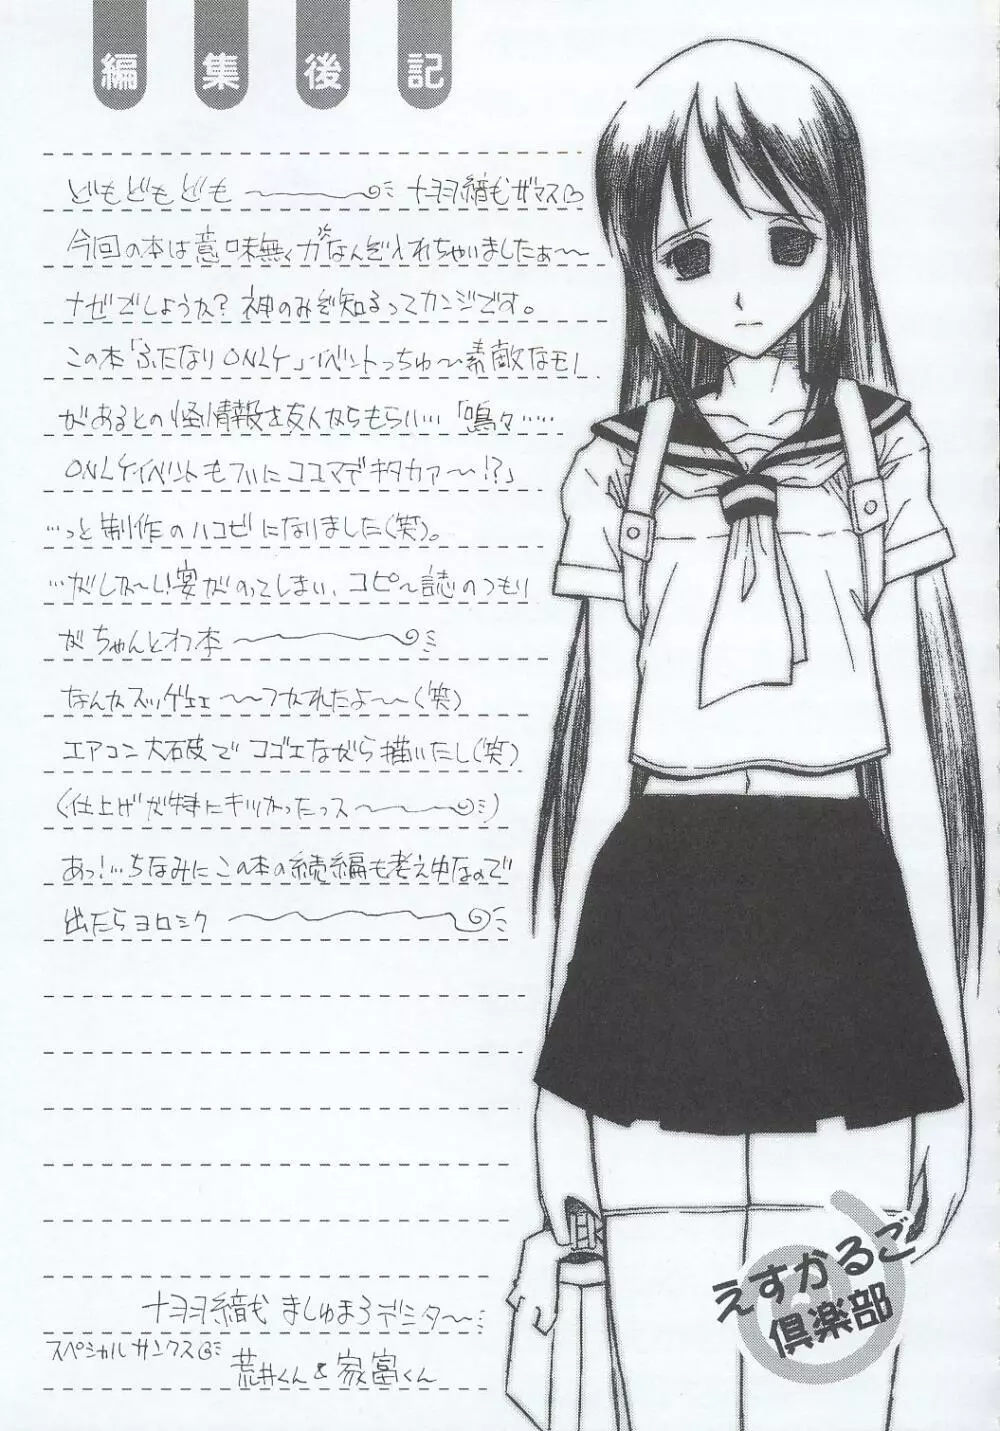 編集後記
どもどもども 十羽織ましゅまろザマス
今回の本は意味無くガなんぞ入れちゃいましたぁ〜
ナゼでしょうか?神のみぞ知るってカンジです。
この本「ふたなりONLY」イベントっちゅ〜素敵なモノ
があるとの怪情報を友人からもらい…「嗚々……
ONLYイベントもついにココまでキタカァ〜!?」
…っと制作のハコビになりました(笑)。
…がしか〜し!宴がのってしまい、コピ〜誌のつもり
がちゃんとオフ本
なんかスッゲェェ〜〜つかれたよ〜(笑)
エアコン大破でコゴエながら描いたし(笑)
(仕上げが特にキツかったっス)
あっ!…ちなみにこの本の続編も考え中なので
出たらヨロシク
ましゅまろデシタ〜
スペシャルサンクス
荒井くん&家富くん
えすかるご
倶楽部